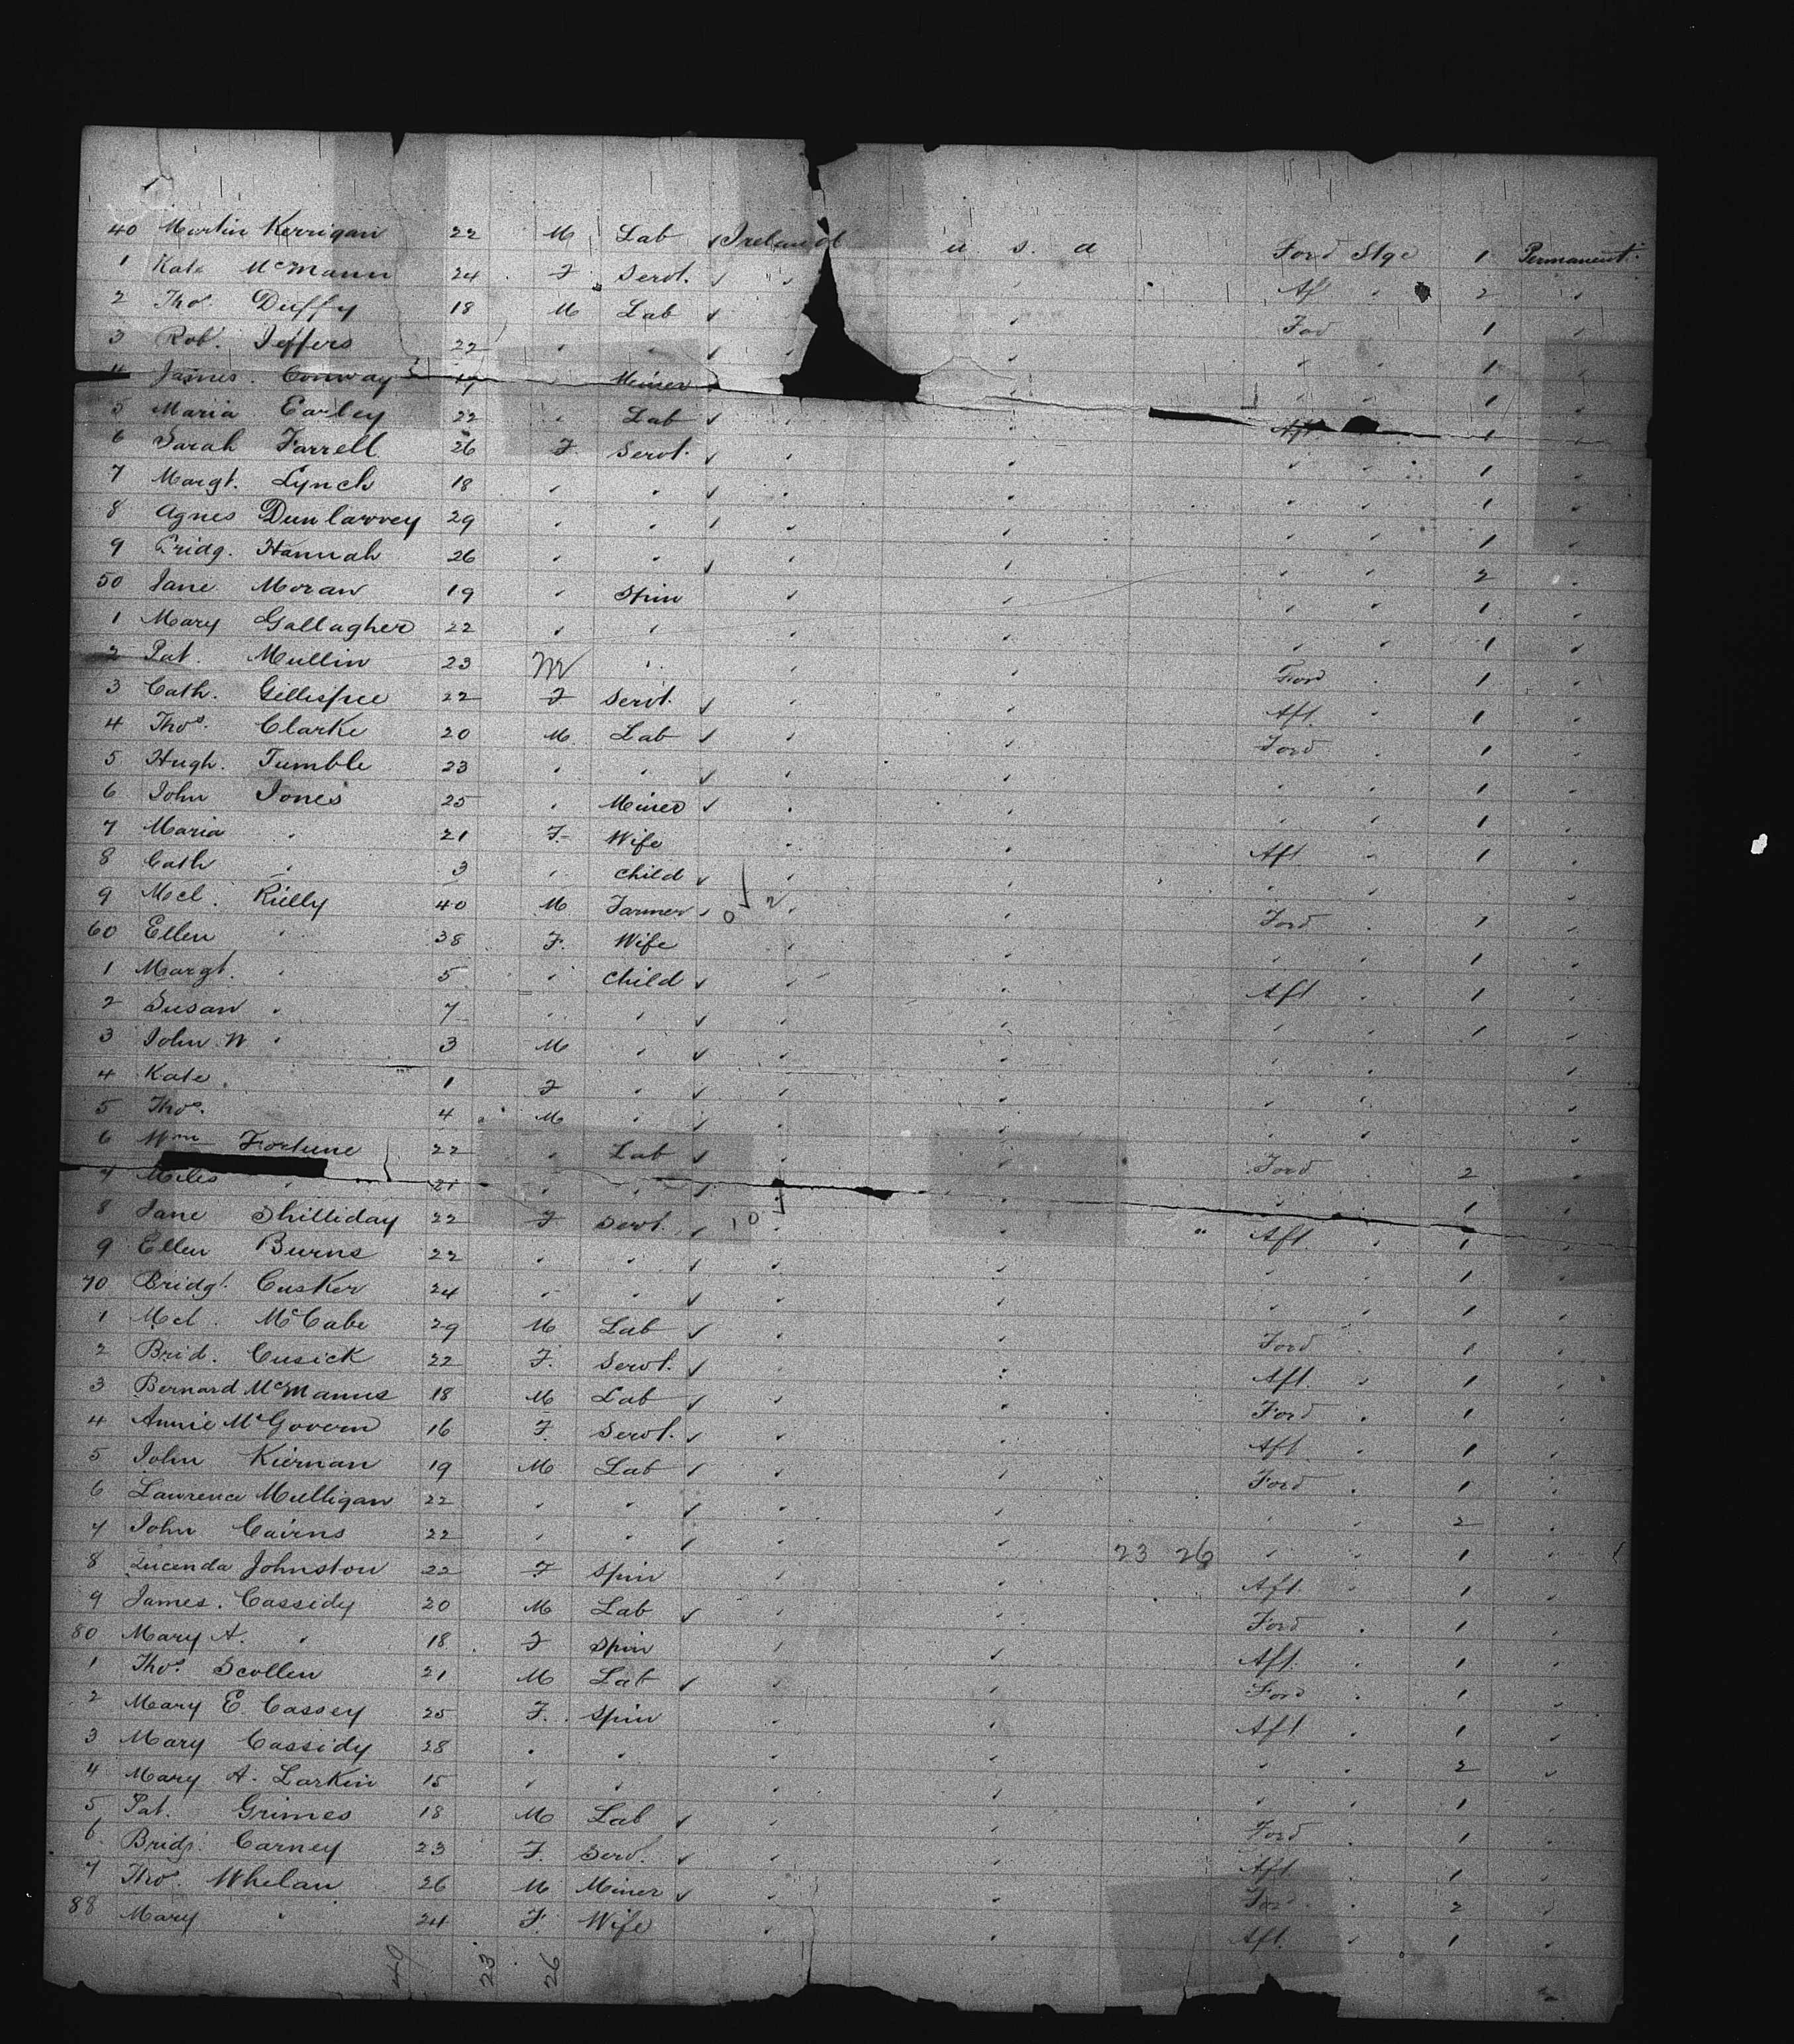 40 Martin Kerrigan 22 M Lab Ireland U. S. A Ford Stge 1 Permanent
1 Kate McMann 24 F Servt. " " Aft " 2 "
2 Thos Duffy 18 M Lab " Ford 1 "
3 Rob. Jeffers 22 " " " " " " 1 "
4 James. Conway " Miner " " " " 1 "
5 Maria Earley 22 " Lab " " Aft 1 "
6 Sarah Farrell 26 F Servt. " " " " 1 "
7 Margt. Lynch 18 " " " " " " 1 "
8 Agnes Dunlarvey 29 " " " " " " 1 "
9 Bridg. Hannah 26 " " " " " " 2 "
50 Jane Moran 19 " Spin " " " " 1 "
1 Mary Gallagher 22 " " " " " " 1 "
2 Pat. Mullin 23 M " " " Ford " 1 "
3 Cath. Gillispee 22 F Servt. " " Aft. " 1 "
4 Thos. Clarke 20 M Lab " " Ford " 1 "
5 Hugh. Tumble 23 " " " " " " 1 "
6 John Jones 25 " Miner " " " " 1 "
7 Maria " 21 F. Wife " " Aft " 1 "
8 Cath " 3 " Child " " " "
9 Mcl. Rielly 40 M Farmer " " Ford " 1 "
60 Ellen " 38 F. Wife " " " " 1 "
1 Margt. " 5 " Child " " Aft " 1 "
2 Susan " 7 " " " " " " 1 "
3 John W " 3 M " " " " " "
4 Kate " 1 F " " " " " "
5 Thos. 4 M " " " " " "
6 Wm Fortune 22 " Lab " " Ford " 2 "
7 Miles " 21 " " " " " " 1 "
8 Jane Shilliday 22 F Servt. 10 " " " Aft. " 1 "
9 Ellen Burns 22 " " " " " " 1 "
70 Bridgt. Cusker 24 " " " " " " 1 "
1 Mcl. McCabe 29 M Lab " " Ford " 1 "
2 Brid. Cusick 22 F. Servt. " " Aft. " 1 "
3 Bernard McManus 18 M Lab " " Ford " 1 "
4 Annie McGovern 16 F. Servt. " " Aft " 1 "
5 John Kiernan 19 M Lab " " Ford " 1 "
6 Lawrence Mulligan 22 " " " " " " 2 "
7 John Cairns 22 " " " " 23 26 " " 1 "
8 Lucenda Johnston 22 F Spin " " Aft. " 1 "
9 James. Cassidy 20 M Lab " " Ford " 1 "
80 Mary A. " 18 F Spin " " Aft. " 1 "
1 Thos. Scollen 21 M Lab " " Ford " 1 "
2 Mary E. Cassey 25 F. Spin " " Aft " 1 "
3 Mary Cassidy 28 " " " " " " 2 "
4 Mary A. Larkin 15 " " " " " " 1 "
5 Pat. Grimes 18 M Lab " " Ford " 1 "
6 Bridg. Carney 23 F. Serv. " " Aft. " 1 "
7 Thos. Whelan 26 M Miner " " Ford " 2 "
88 Mary " 24 F. Wife " " Aft. " 1 "
49 23 26